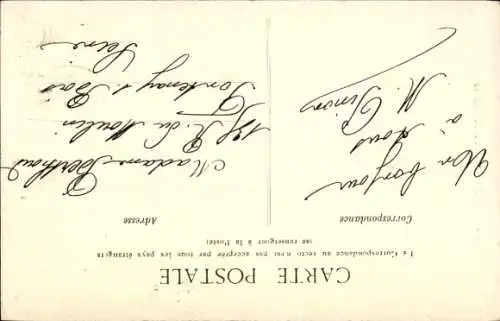 CARTE POSTALE
La Correspondance au recto n'est pas acceptée par tous les pays étrangers
(se renseigner à la Poste)
Correspondance
Un bonjour
à tous
M. Simon
Adresse
Madame Berthoud
R. du Moulin
Fontenay s Bois
Seine